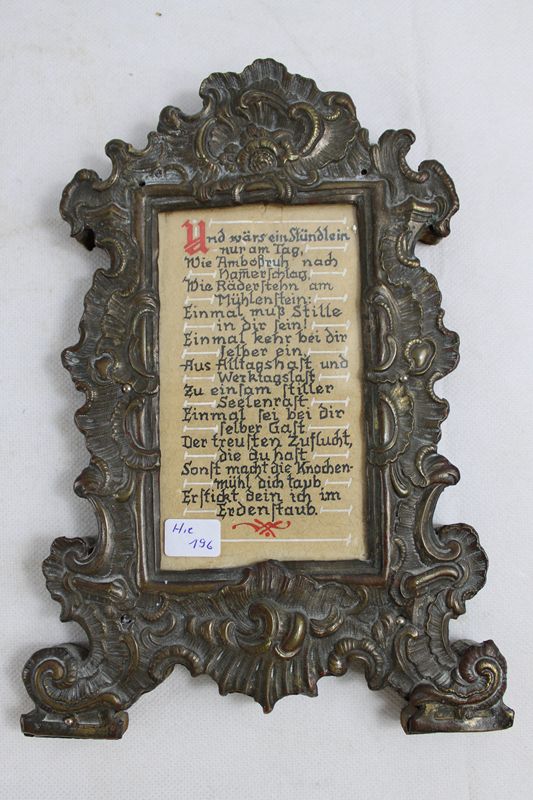 Und wärs ein Stündlein
nur am Tag,
Wie Amboßruh nach
Ham̄erschlag,
Wie Räderstehn am
Mühlenstein:
Einmal muß Stille
in dir sein!
Einmal kehr bei dir
selber ein,
Aus Alltagshast und
Werktagslast
Zu einsam stiller
Seelenrast,
Einmal sei bei dir
selber Gast
Der treusten Zuflucht,
die du hast
Sonst macht die Knochen-
mühl dich taub
Erstickt dein ich im
Erdenstaub.
H.e
196